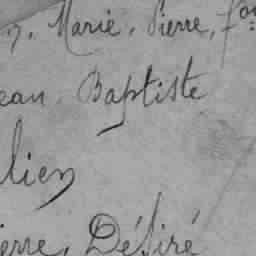 7. Marie, Pierre, fon
ean Baptiste
lien
ierre, Désiré